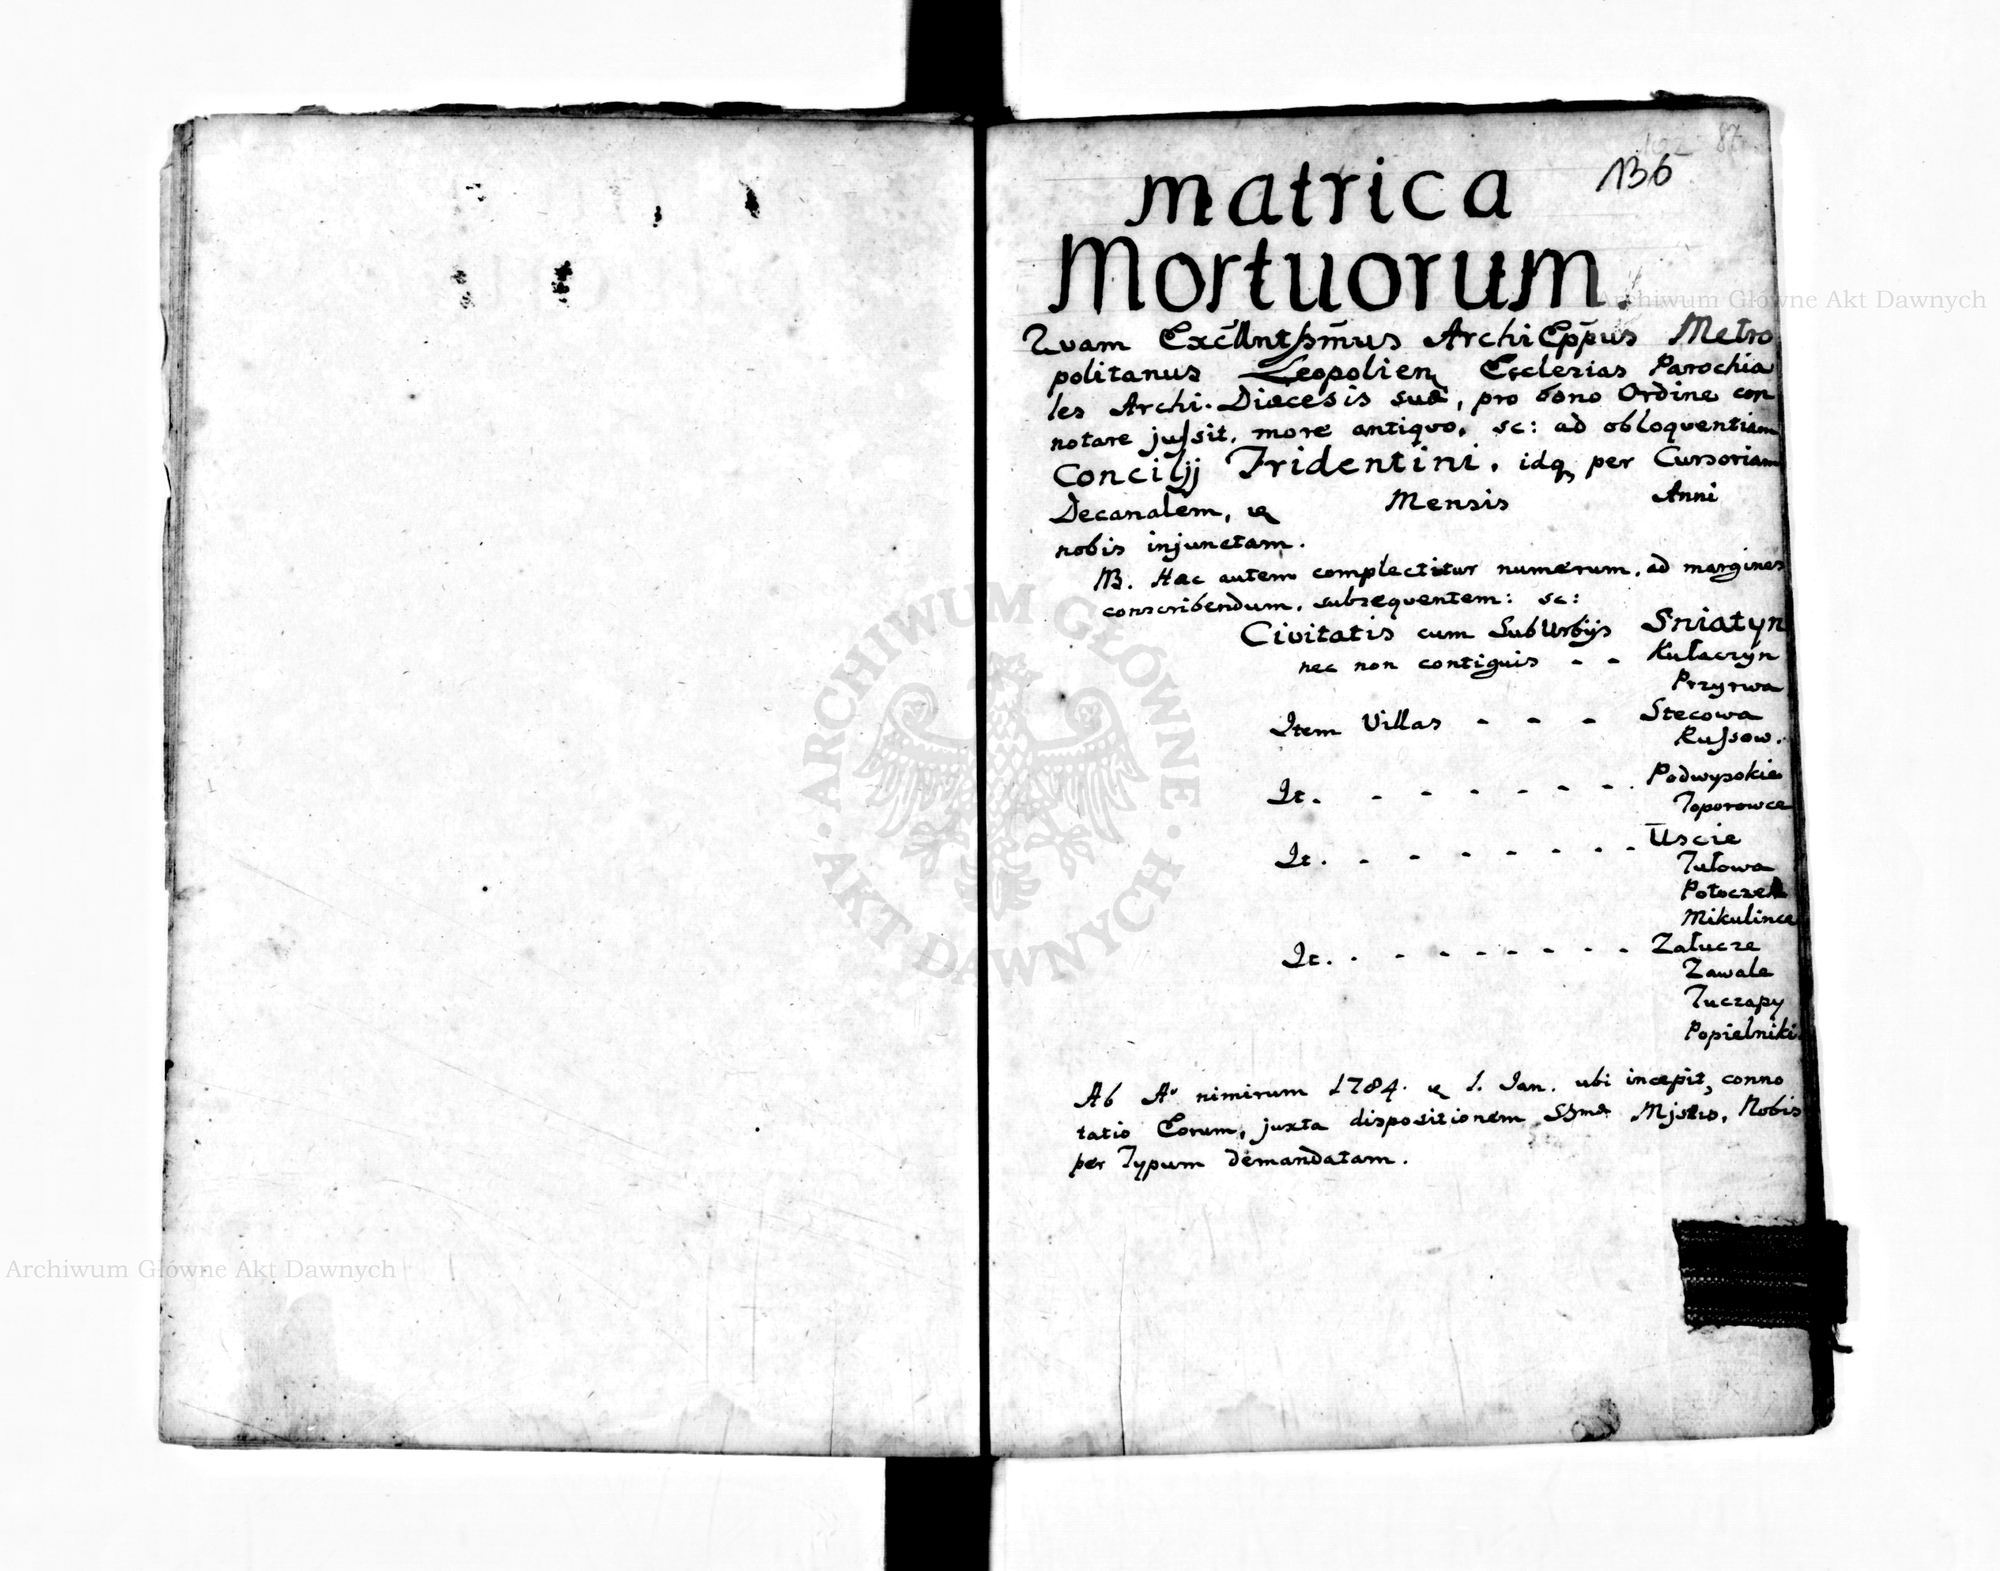 87
136
matrica
Mortuorum.
Quam Excĩllntſsm̃us ArchiEpp̃us Metro
politanus Leopolien Ecclesias Parochia
les Archi-Diæcesis suæ, pro bono Ordine con
notare juſsit, more antiquo, sc: ad obloquentiam
Concilij Tridentini, idq per Cursoriam
Decanalem, Mensis Anni
nobis injunctam.
NB. Hæc autem complectitur numerum, ad margines
conscribendum, subsequentem: sc:
Civitatis cum SubUrbijs Sniatyn
nec non contiguis - - Kułaczyn
Przyrwa
Item Villas - - - Stecowa
Ruſsow.
It. - - - - - - - Podwysokie
Toporowce
It. - - - - - - - Uscie
Tułowa
Potoczek
Mikulince
It. . - - - - - - - Załucze
Zawale
Tuczapy
Popielniki
Ab Aº nimirum 1784. 1. Jan. ubi incepit, conno
tatio Eorum, juxta dispositionem SSmæ Mjstis, Nobis
per Typum demandatam.
Archiwum Główne Akt Dawnych
Archiwum Główne Akt Dawnych
ARCHIWUM GŁÓWNE
AKT DAWNYCH